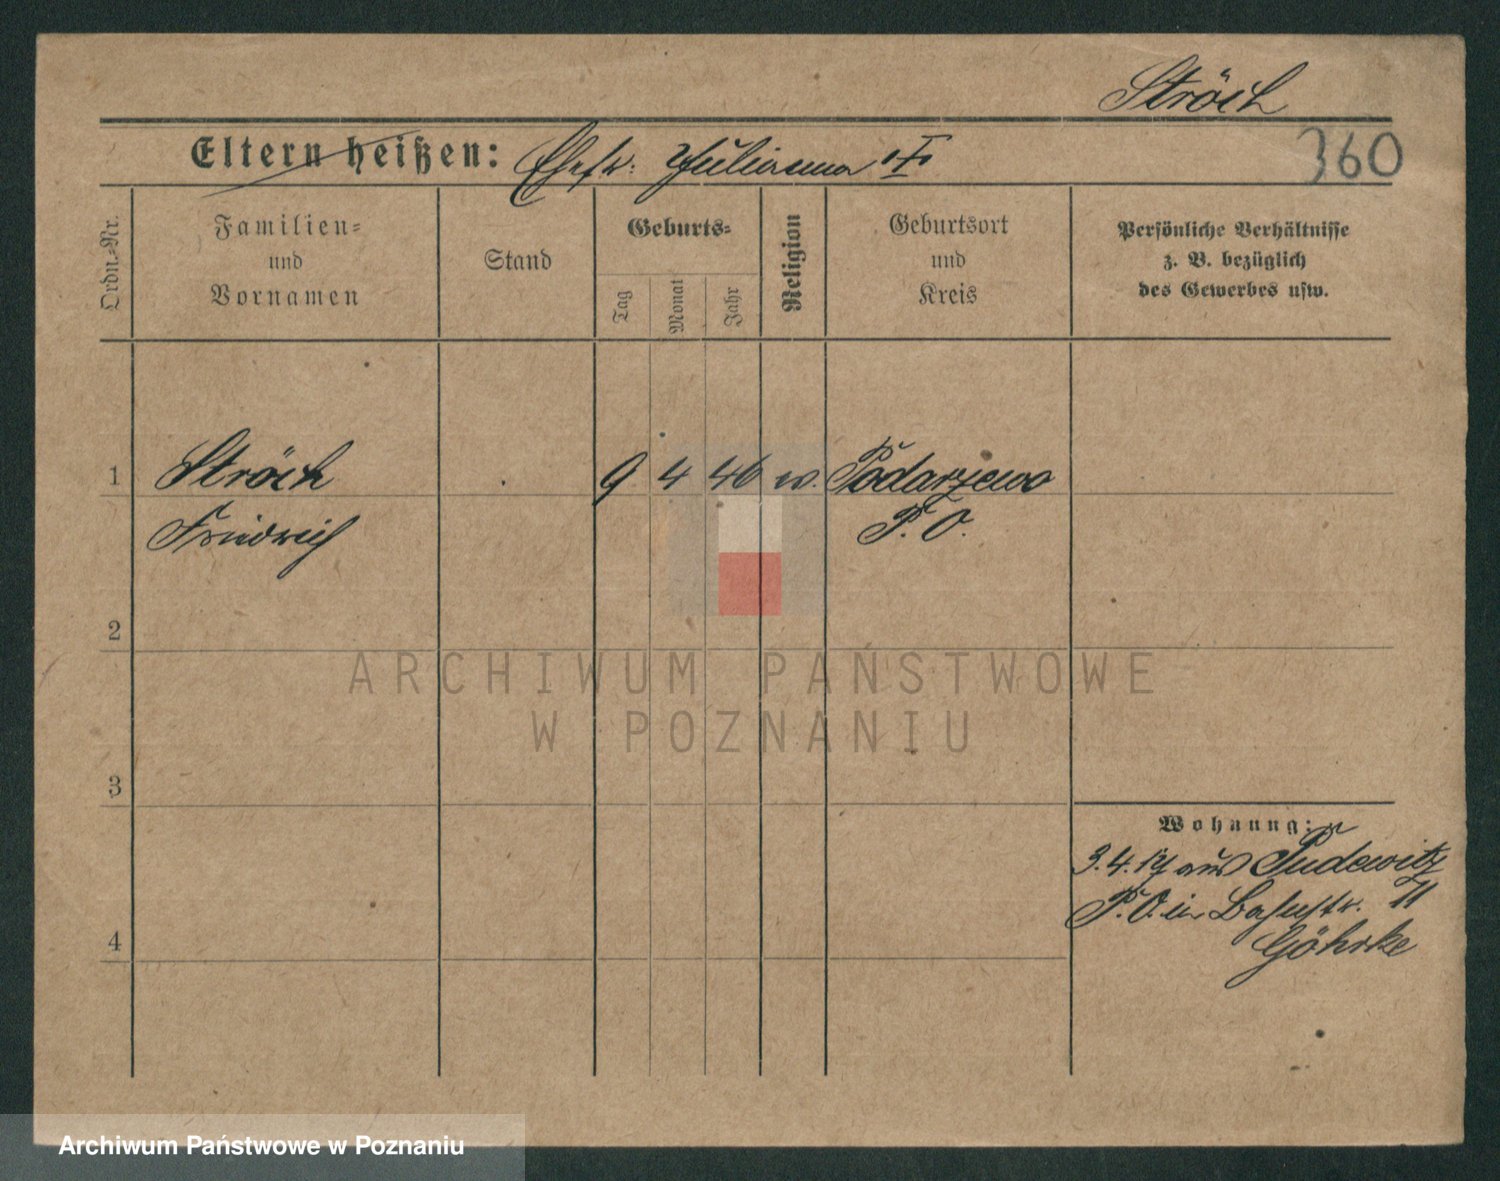 Ströch
Eltern heißen: Ehefr. Julianna
360
Ordn.-Nr.
Familien-
und
Vornamen
Stand
Geburts-
Tag
Monat
Jahr
Religion
Geburtsort
und
Kreis
Persönliche Verhältnisse
z. B. bezüglich
des Gewerbes usw.
1 Ströch 9 4 46 w. Podarzewo
Friedrich P. O.
2
3
4
Wohnung:
3. 4. 14 aus Pudewitz
P. O. in Bahnstr. 11
Göhrke
ARCHIWUM PAŃSTWOWE
W POZNANIU
Archiwum Państwowe w Poznaniu